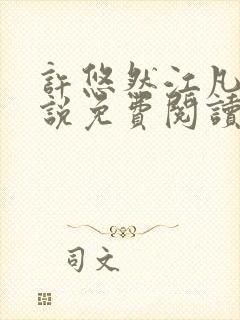 許悠然江凡
說免費閱讀
司文